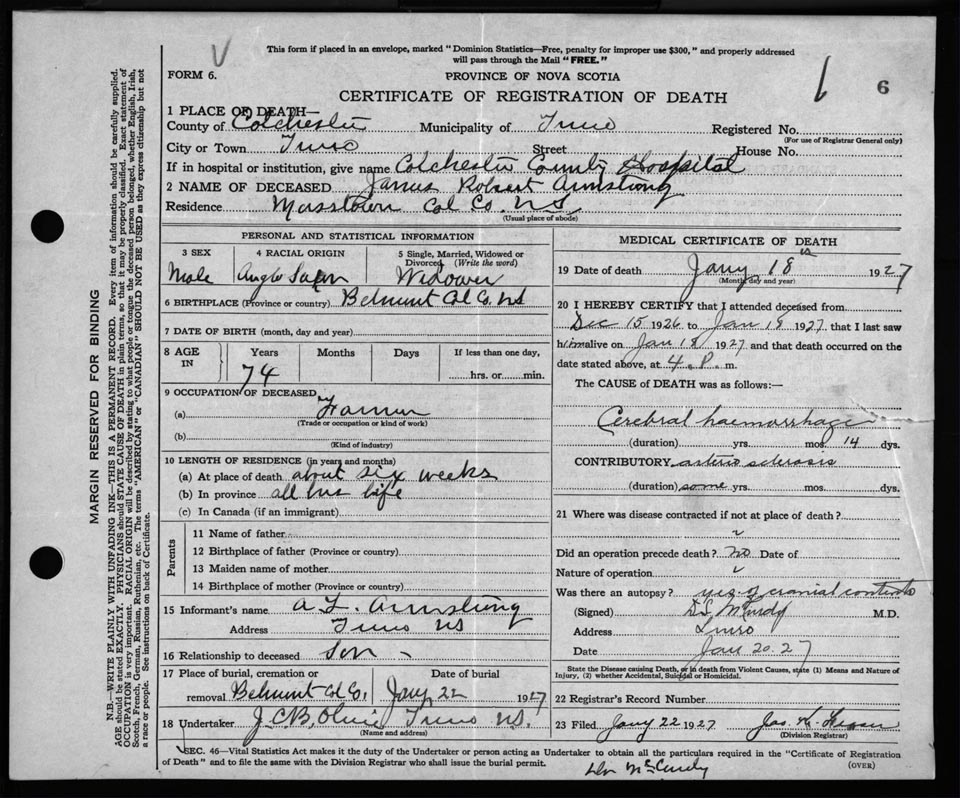 This form if placed in an envelope, marked "Dominion Statistics—Free, penalty for improper use $300," and properly addressed
will pass through the Mail "FREE."
FORM 6.
PROVINCE OF NOVA SCOTIA
6
CERTIFICATE OF REGISTRATION OF DEATH
1 PLACE OF DEATH—
County of Colchester Municipality of Truro Registered No.
(For use of Registrar General only)
City or Town Truro Street House No.
If in hospital or institution, give name Colchester County Hospital
2 NAME OF DECEASED James Robert Armstrong
Residence Masstown Col Co. NS
(Usual place of abode)
PERSONAL AND STATISTICAL INFORMATION
3 SEX 4 RACIAL ORIGIN 5 Single, Married, Widowed or Divorced (Write the word)
Male Anglo Saxon Widower
6 BIRTHPLACE (Province or country) Belmont Col Co. NS
7 DATE OF BIRTH (month, day and year)
8 AGE IN Years Months Days If less than one day,
74 hrs. or min.
9 OCCUPATION OF DECEASED
(a) Farmer
(Trade or occupation or kind of work)
(b)
(Kind of industry)
10 LENGTH OF RESIDENCE (in years and months)
(a) At place of death about six weeks
(b) In province all his life
(c) In Canada (if an immigrant)
Parents
11 Name of father
12 Birthplace of father (Province or country)
13 Maiden name of mother
14 Birthplace of mother (Province or country)
15 Informant's name A L. Armstrong
Address Truro NS
16 Relationship to deceased Son
17 Place of burial, cremation or Date of burial
removal Belmont Col Co. Jany 22 1927
18 Undertaker J.C.B. Olive Truro NS.
(Name and address)
MEDICAL CERTIFICATE OF DEATH
19 Date of death Jany 18th 1927
(Month, day and year)
20 I HEREBY CERTIFY that I attended deceased from
Dec 15 1926 to Jan 18 1927 that I last saw
him alive on Jan 18 1927 and that death occurred on the
date stated above, at 4. P. m.
The CAUSE of DEATH was as follows:—
Cerebral haemorrhage
(duration) yrs. mos. 14 dys.
CONTRIBUTORY arterio sclerosis
(duration) some yrs. mos. dys.
21 Where was disease contracted if not at place of death?
Did an operation precede death? no Date of
Nature of operation
Was there an autopsy? yes of cranial contents
(Signed) D.S. McCurdy M.D.
Address Truro
Date Jan 20. 27
State the Disease causing Death, or in death from Violent Causes, state (1) Means and Nature of
Injury, (2) whether Accidental, Suicidal or Homicidal.
22 Registrar's Record Number
23 Filed Jany 22 1927 Jas. K.
(Division Registrar)
SEC. 46—Vital Statistics Act makes it the duty of the Undertaker or person acting as Undertaker to obtain all the particulars required in the "Certificate of Registration
of Death" and to file the same with the Division Registrar who shall issue the burial permit.
(OVER)
McCurdy
MARGIN RESERVED FOR BINDING
N.B.—WRITE PLAINLY WITH UNFADING INK—THIS IS A PERMANENT RECORD. Every item of information should be carefully supplied.
AGE should be stated EXACTLY. PHYSICIANS should STATE CAUSE OF DEATH in plain terms, so that it may be properly classified. Exact statement of
OCCUPATION is very important. RACIAL ORIGIN will be described by stating to what people or tongue the deceased person belonged, whether English, Irish,
Scotch, French, German, Russian, Ruthenian, etc. The terms "AMERICAN" or "CANADIAN" SHOULD NOT BE USED as they express citizenship but not
a race or people. See instructions on back of Certificate.